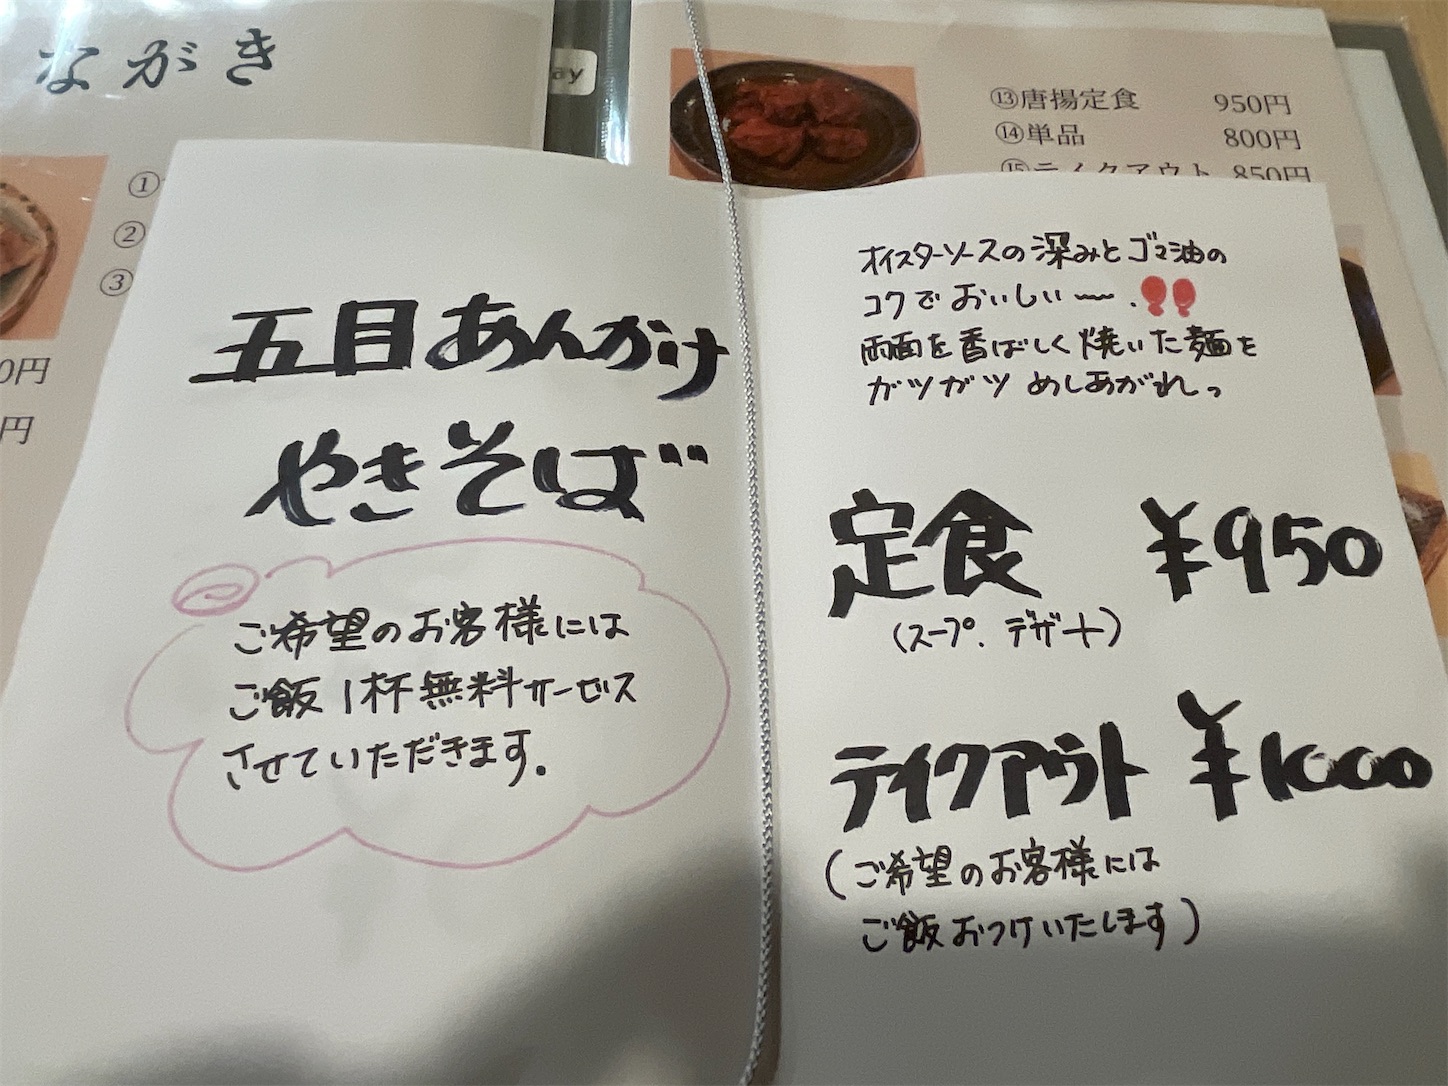 ながき
ay
⑬唐揚定食 950円
⑭単品 800円
⑮テイクアウト 850円
①
②
③
0円
円
五目あんかけ
やきそば
ご希望のお客様には
ご飯1杯無料サービス
させていただきます。
オイスターソースの深みとゴマ油の
コクでおいしい〜.!!
両面を香ばしく焼いた麺を
ガツガツめしあがれっ
定食 ¥950
(スープ、デザート)
テイクアウト ¥1000
(ご希望のお客様には
ご飯おつけいたします)